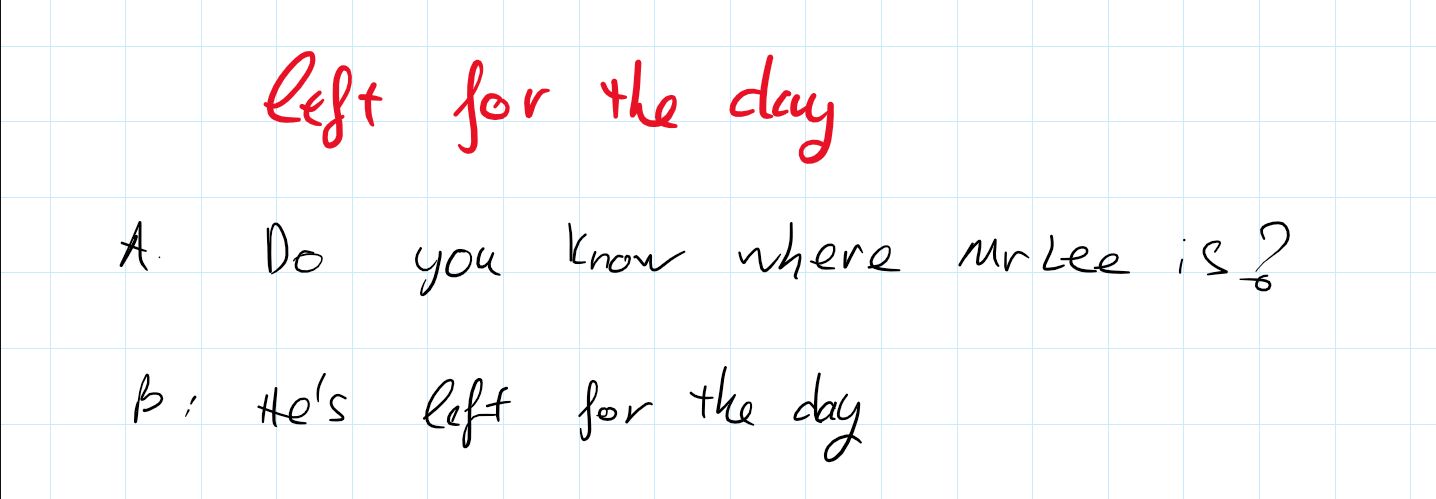 left for the day
A. Do you know where Mr Lee is?
B: He's left for the day